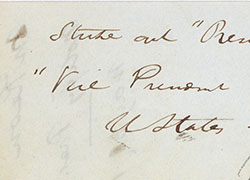 Strike out "Presi
"Vice President
U States -